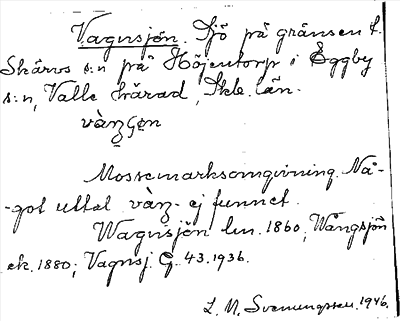 Vagnsjön. Sjö på gränsen t.
Skärvs s:n på Höjentorp i Eggby
s:n, Valle härad, Skb. län.
Mossemarksomgivning. Nå-
-got uttal vàŋ- ej funnet.
Wagnsjön ln. 1860; Wångsjön
ek. 1880; Vagnsj. G. 43. 1936.
L. M. Svenungsson. 1946.